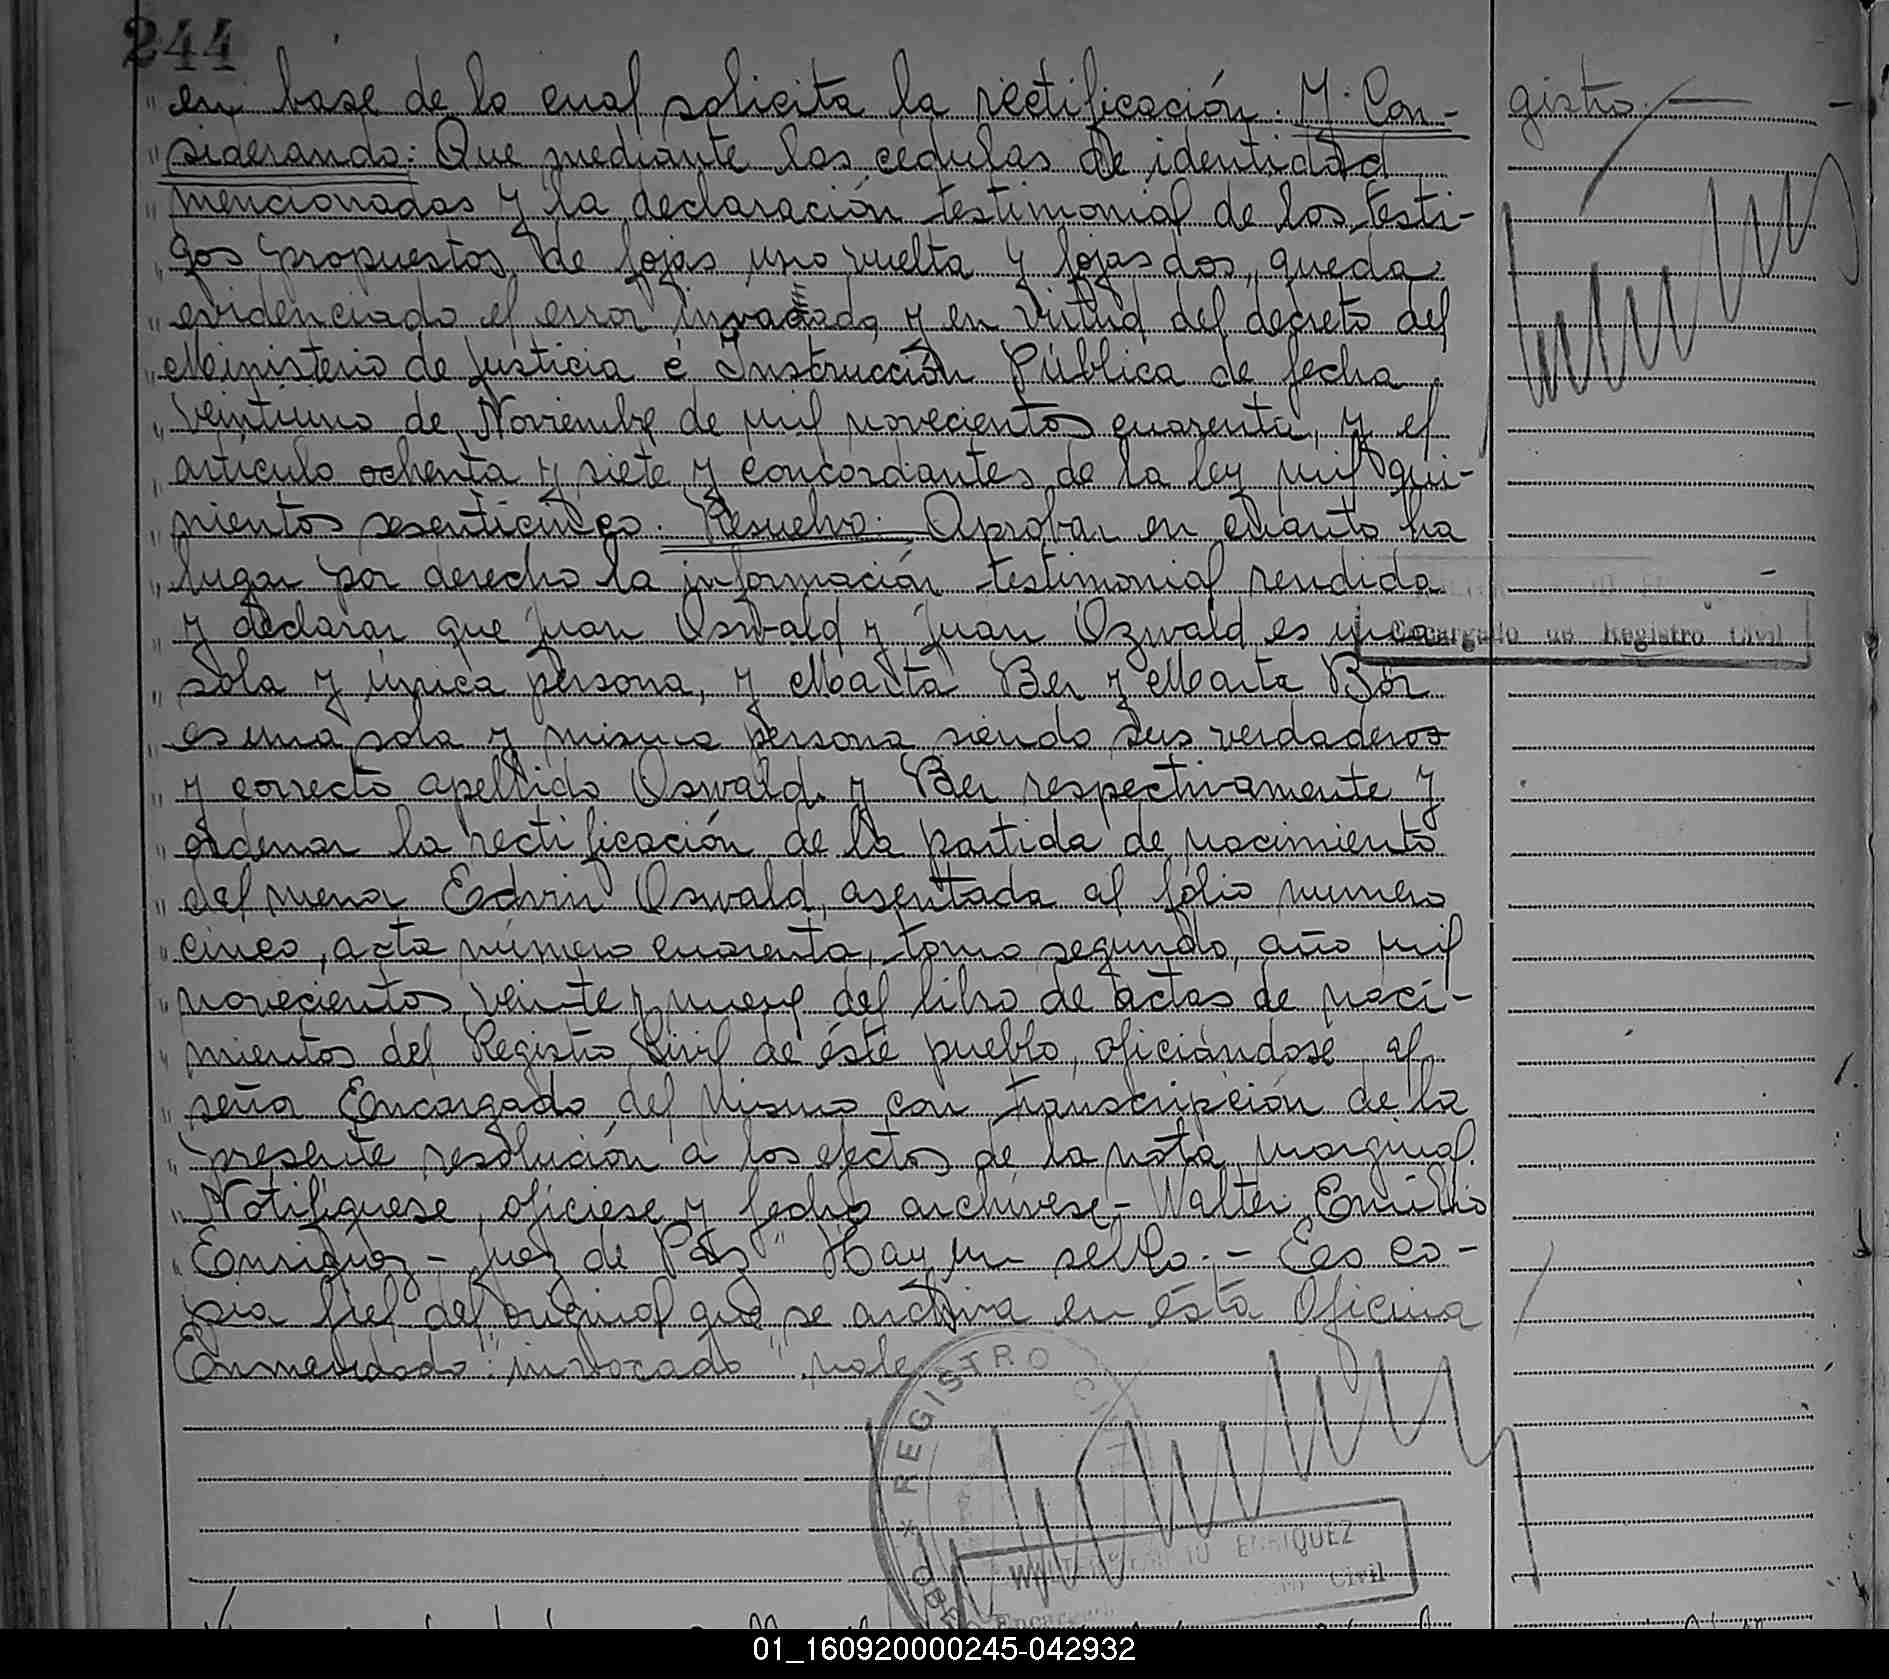 244
" en base de la cual solicita la rectificación: Y: Con-
" siderando: Que mediante las cédulas de identidad
" mencionadas y la declaración testimonial de los testi-
" gos propuestos de fojas uno vuelta y fojas dos, queda
" evidenciado el error invocado, y en virtud del decreto del
" Ministerio de Justicia é Instrucción Pública de fecha
" veintiuno de Noviembre de mil novecientos cuarenta, y el
" artículo ochenta y siete y concordantes de la ley mil qui-
" nientos sesenticinco. Resuelvo: Aprobar en cuanto ha
" lugar por derecho la información testimonial rendida
" y declarar que Juan Oswald y Juan Ozwald es una
" sola y única persona, y Marta Ber y Marta Bör
" es una sola y misma persona siendo sus verdaderos
" y correcto apellido Oswald y Ber respectivamente y
" ordenar la rectificación de la partida de nacimiento
" del menor Edwin Oswald, asentada al folio numero
" cinco, acta número cuarenta, tomo segundo, año mil
" novecientos veinte y nueve del libro de actas de naci-
" mientos del Registro Civil de éste pueblo, oficiándose al
" señor Encargado del mismo con transcripción de la
" presente resolución a los efectos de la nota marginal.
" Notifíquese, ofíciese y fecho archívese- Walter Emilio
" Enriquez - Juez de Paz" Hay un sello.- Es co-
pia fiel del original que se archiva en ésta Oficina
Enmendado: "invocado" vale
gistro.-
Encargado de Registro Civil
REGISTRO CIVIL
ENRIQUEZ
Civil
01_160920000245-042932